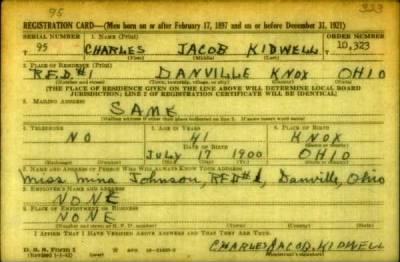 95
REGISTRATION CARD—(Men born on or after February 17, 1897 and on or before December 31, 1921)
SERIAL NUMBER 1. NAME (Print) ORDER NUMBER
T 95 CHARLES JACOB KIDWELL 10,323
(First) (Middle) (Last)
2. PLACE OF RESIDENCE (Print)
R.F.D.#1 DANVILLE KNOX OHIO
(Number and street) (Town, township, village, or city) (County) (State)
[THE PLACE OF RESIDENCE GIVEN ON THE LINE ABOVE WILL DETERMINE LOCAL BOARD
JURISDICTION; LINE 2 OF REGISTRATION CERTIFICATE WILL BE IDENTICAL]
3. MAILING ADDRESS
SAME
[Mailing address if other than place indicated on line 2. If same insert word same]
4. TELEPHONE 5. AGE IN YEARS 6. PLACE OF BIRTH
NO 41 KNOX
DATE OF BIRTH
JULY 17 1900 OHIO
(Exchange) (Number) (Mo.) (Day) (Yr.) (State or country)
7. NAME AND ADDRESS OF PERSON WHO WILL ALWAYS KNOW YOUR ADDRESS
Miss. Mina Johnson, RFD#1, Danville, Ohio
8. EMPLOYER'S NAME AND ADDRESS
NONE
9. PLACE OF EMPLOYMENT OR BUSINESS
NONE
I AFFIRM THAT I HAVE VERIFIED ABOVE ANSWERS AND THAT THEY ARE TRUE.
D. S. S. Form 1
(Revised 1-1-42)
CHARLES JACOB KIDWELL
(Registrant's signature)